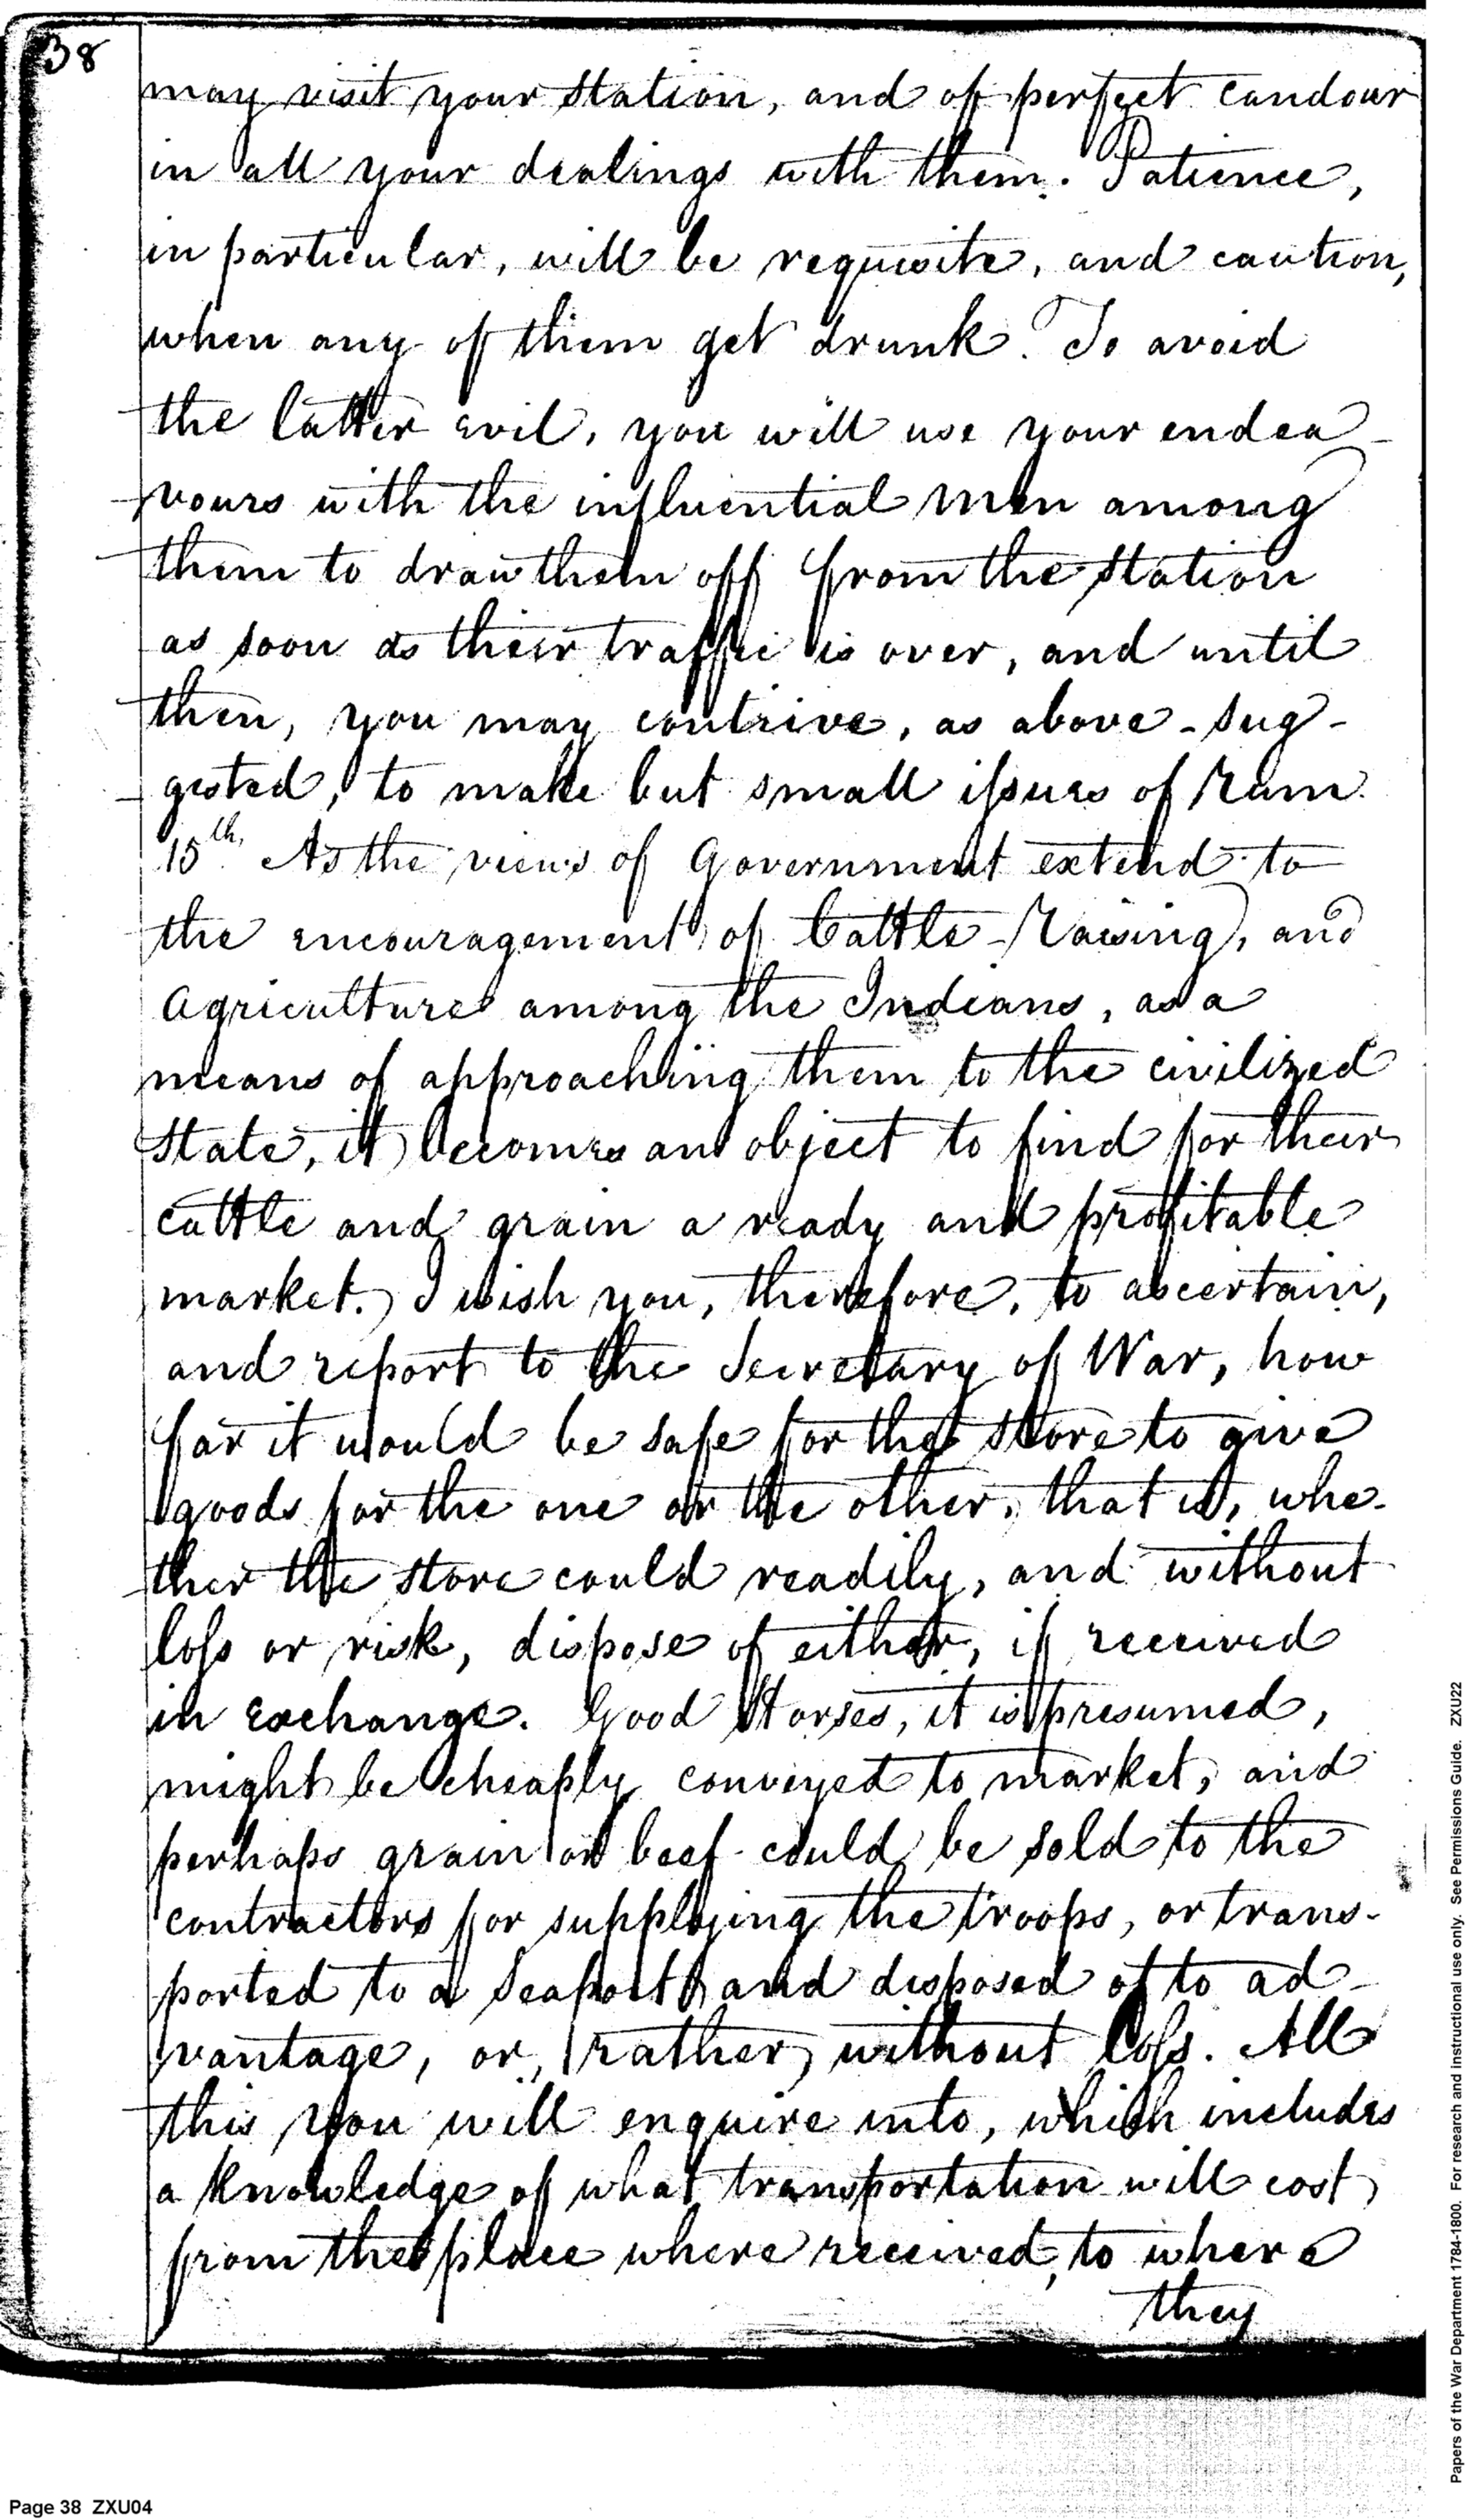 38
may visit your station, and of perfect candour
in all your dealings with them. Patience,
in particular, will be requisite, and caution,
when any of them get drunk. To avoid
the latter evil, you will use your endea-
vours with the influential men among
them to draw them off from the station
as soon as their traffic is over, and until
then, you may contrive, as above-sug-
gested, to make but small issues of Rum.
15th. As the views of Government extend to
the encouragement of Cattle-Raising, and
Agriculture among the Indians, as a
means of approaching them to the civilized
State, it becomes an object to find for their
cattle and grain a ready and profitable
market. I wish you, therefore, to ascertain,
and report to the Secretary of War, how
far it would be safe for the store to give
goods for the one or the other, that is, whe-
ther the store could readily, and without
loss or risk, dispose of either, if received
in exchange. Good Horses, it is presumed,
might be cheaply conveyed to market, and
perhaps grain or beef could be sold to the
contractors for supplying the troops, or trans-
ported to a Seaport and disposed of to ad-
vantage, or, rather, without loss. All
this you will enquire into, which includes
a knowledge of what transportation will cost,
from the place where received, to where
they
Page 38 ZXU04
Papers of the War Department 1784-1800. For research and instructional use only. See Permissions Guide. ZXU22